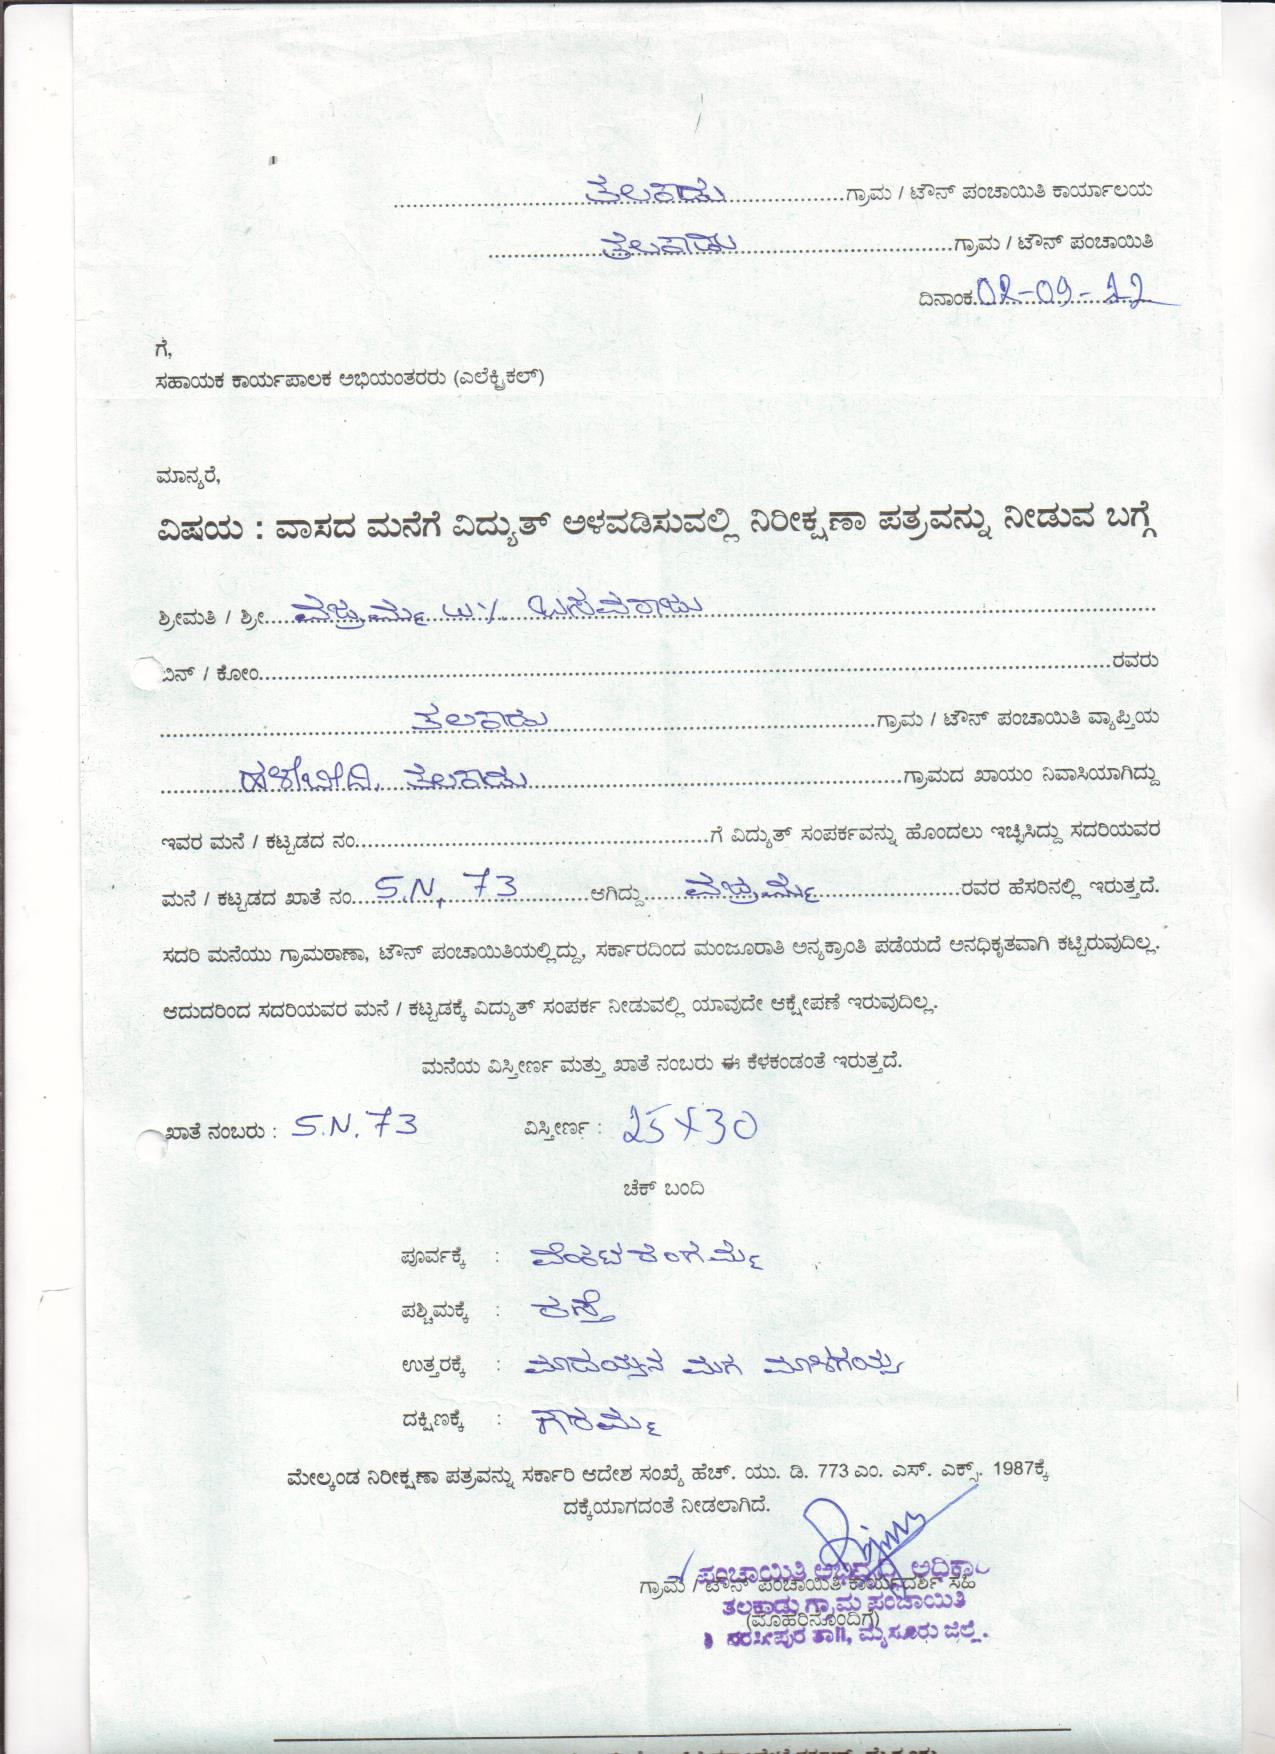 ತಲಕಾಡು ಗ್ರಾಮ / ಟೌನ್ ಪಂಚಾಯಿತಿ ಕಾರ್ಯಾಲಯ
ತಲಕಾಡು ಗ್ರಾಮ / ಟೌನ್ ಪಂಚಾಯಿತಿ
ದಿನಾಂಕ 02-09-22
ಗೆ,
ಸಹಾಯಕ ಕಾರ್ಯಪಾಲಕ ಅಭಿಯಂತರರು (ಎಲೆಕ್ಟ್ರಿಕಲ್)
ಮಾನ್ಯರೆ,
ವಿಷಯ : ವಾಸದ ಮನೆಗೆ ವಿದ್ಯುತ್ ಅಳವಡಿಸುವಲ್ಲಿ ನಿರೀಕ್ಷಣಾ ಪತ್ರವನ್ನು ನೀಡುವ ಬಗ್ಗೆ
ಶ್ರೀಮತಿ / ಶ್ರೀ ವಜ್ರಮ್ಮ W/. ಬಸವರಾಜು
ಬಿನ್ / ಕೋಂ ರವರು
ತಲಕಾಡು ಗ್ರಾಮ / ಟೌನ್ ಪಂಚಾಯಿತಿ ವ್ಯಾಪ್ತಿಯ
ಹಳೇಬೀದಿ, ತಲಕಾಡು ಗ್ರಾಮದ ಖಾಯಂ ನಿವಾಸಿಯಾಗಿದ್ದು
ಇವರ ಮನೆ / ಕಟ್ಟಡದ ನಂ. ಗೆ ವಿದ್ಯುತ್ ಸಂಪರ್ಕವನ್ನು ಹೊಂದಲು ಇಚ್ಛಿಸಿದ್ದು ಸದರಿಯವರ
ಮನೆ / ಕಟ್ಟಡದ ಖಾತೆ ನಂ. S.N, 73 ಆಗಿದ್ದು ವಜ್ರಮ್ಮ ರವರ ಹೆಸರಿನಲ್ಲಿ ಇರುತ್ತದೆ.
ಸದರಿ ಮನೆಯು ಗ್ರಾಮಠಾಣಾ, ಟೌನ್ ಪಂಚಾಯಿತಿಯಲ್ಲಿದ್ದು, ಸರ್ಕಾರದಿಂದ ಮಂಜೂರಾತಿ ಅನ್ಯಕ್ರಾಂತಿ ಪಡೆಯದೆ ಅನಧಿಕೃತವಾಗಿ ಕಟ್ಟಿರುವುದಿಲ್ಲ.
ಆದುದರಿಂದ ಸದರಿಯವರ ಮನೆ / ಕಟ್ಟಡಕ್ಕೆ ವಿದ್ಯುತ್ ಸಂಪರ್ಕ ನೀಡುವಲ್ಲಿ ಯಾವುದೇ ಆಕ್ಷೇಪಣೆ ಇರುವುದಿಲ್ಲ.
ಮನೆಯ ವಿಸ್ತೀರ್ಣ ಮತ್ತು ಖಾತೆ ನಂಬರು ಈ ಕೆಳಕಂಡಂತೆ ಇರುತ್ತದೆ.
ಖಾತೆ ನಂಬರು : S.N. 73 ವಿಸ್ತೀರ್ಣ : 25 X 30
ಚೆಕ್ ಬಂದಿ
ಪೂರ್ವಕ್ಕೆ : ವೆಂಕಟರಂಗಮ್ಮ
ಪಶ್ಚಿಮಕ್ಕೆ : ರಸ್ತೆ
ಉತ್ತರಕ್ಕೆ : ಮಾದಯ್ಯನ ಮಗ ಮಾಳಿಗಯ್ಯ
ದಕ್ಷಿಣಕ್ಕೆ : ಗೌರಮ್ಮ
ಮೇಲ್ಕಂಡ ನಿರೀಕ್ಷಣಾ ಪತ್ರವನ್ನು ಸರ್ಕಾರಿ ಆದೇಶ ಸಂಖ್ಯೆ ಹೆಚ್. ಯು. ಡಿ. 773 ಎಂ. ಎಸ್. ಎಕ್ಸ್. 1987ಕ್ಕೆ
ದಕ್ಕೆಯಾಗದಂತೆ ನೀಡಲಾಗಿದೆ.
ಪಂಚಾಯಿತಿ ಅಭಿವೃದ್ಧಿ ಅಧಿಕಾ
ಗ್ರಾಮ / ಟೌನ್ ಪಂಚಾಯಿತಿ ಕಾರ್ಯದರ್ಶಿ ಸಹಿ
ತಲಕಾಡು ಗ್ರಾಮ ಪಂಚಾಯಿತಿ
(ಮೊಹರಿನೊಂದಿಗೆ)
ನರಸೀಪುರ ತಾ||, ಮೈಸೂರು ಜಿಲ್ಲೆ.